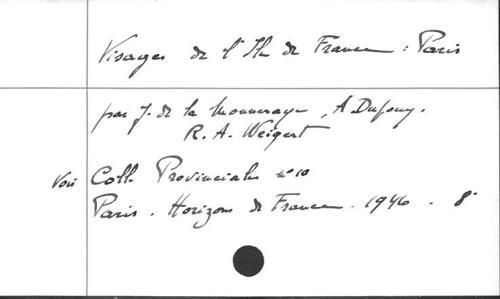 Visages de l'Ile de France : Paris
par J. de la Monneraye, A Dufouy.
R. A. Weigert
Voir Coll. Provinciales n° 10
Paris. Horizons de France. 1946. 8°